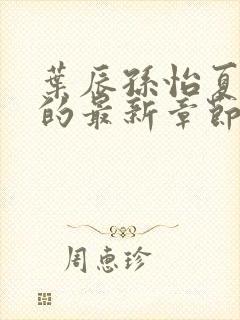 葉辰孫怡夏
的最新章節
周惠珍